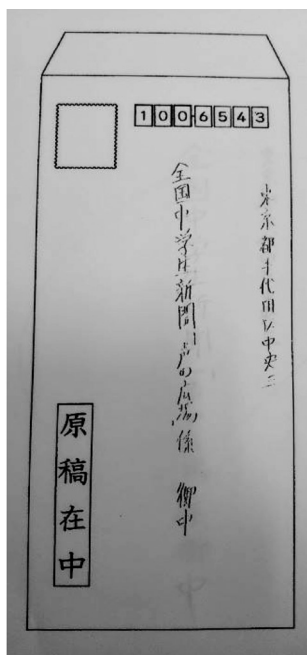 100-6543
東京都千代田区中央二
全国中学生新聞「声の広場」係　御中
原稿在中